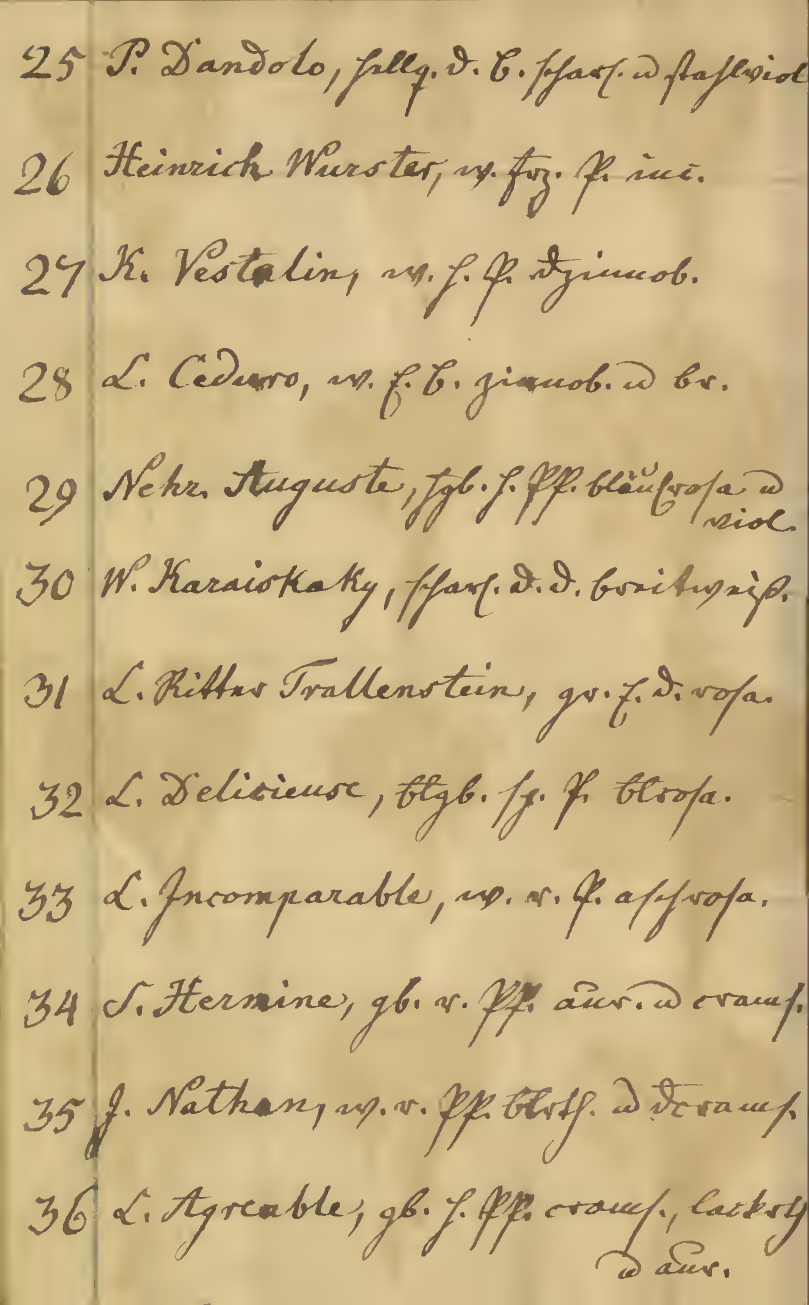 25 P. Dandolo, hellg. d. b. scharl. u stahlviol
26 Heinrich Wurster, w. frz. P. inc.
27 K. Vestalin, w. h. P. dzinnob.
28 L. Ceduro, w. f. b. zinnob. u br.
29 Nehr. Auguste, hgb. h. PP. bläulrosa u
viol.
30 W. Karaiskaky, scharl. d. d. breitweiß.
31 L. Ritter Trallenstein, gr. f. d. rosa.
32 L. Delicieuse, blgb. sp. P. blrosa.
33 L. Incomparable, w. r. P. aschrosa.
34 S. Hermine, gb. r. PP. aur. u crams.
35 J. Nathan, w. r. PP. blrth. u dcrams.
36 L. Agreable, gb. h. PP. crams., lackrth
u aur.